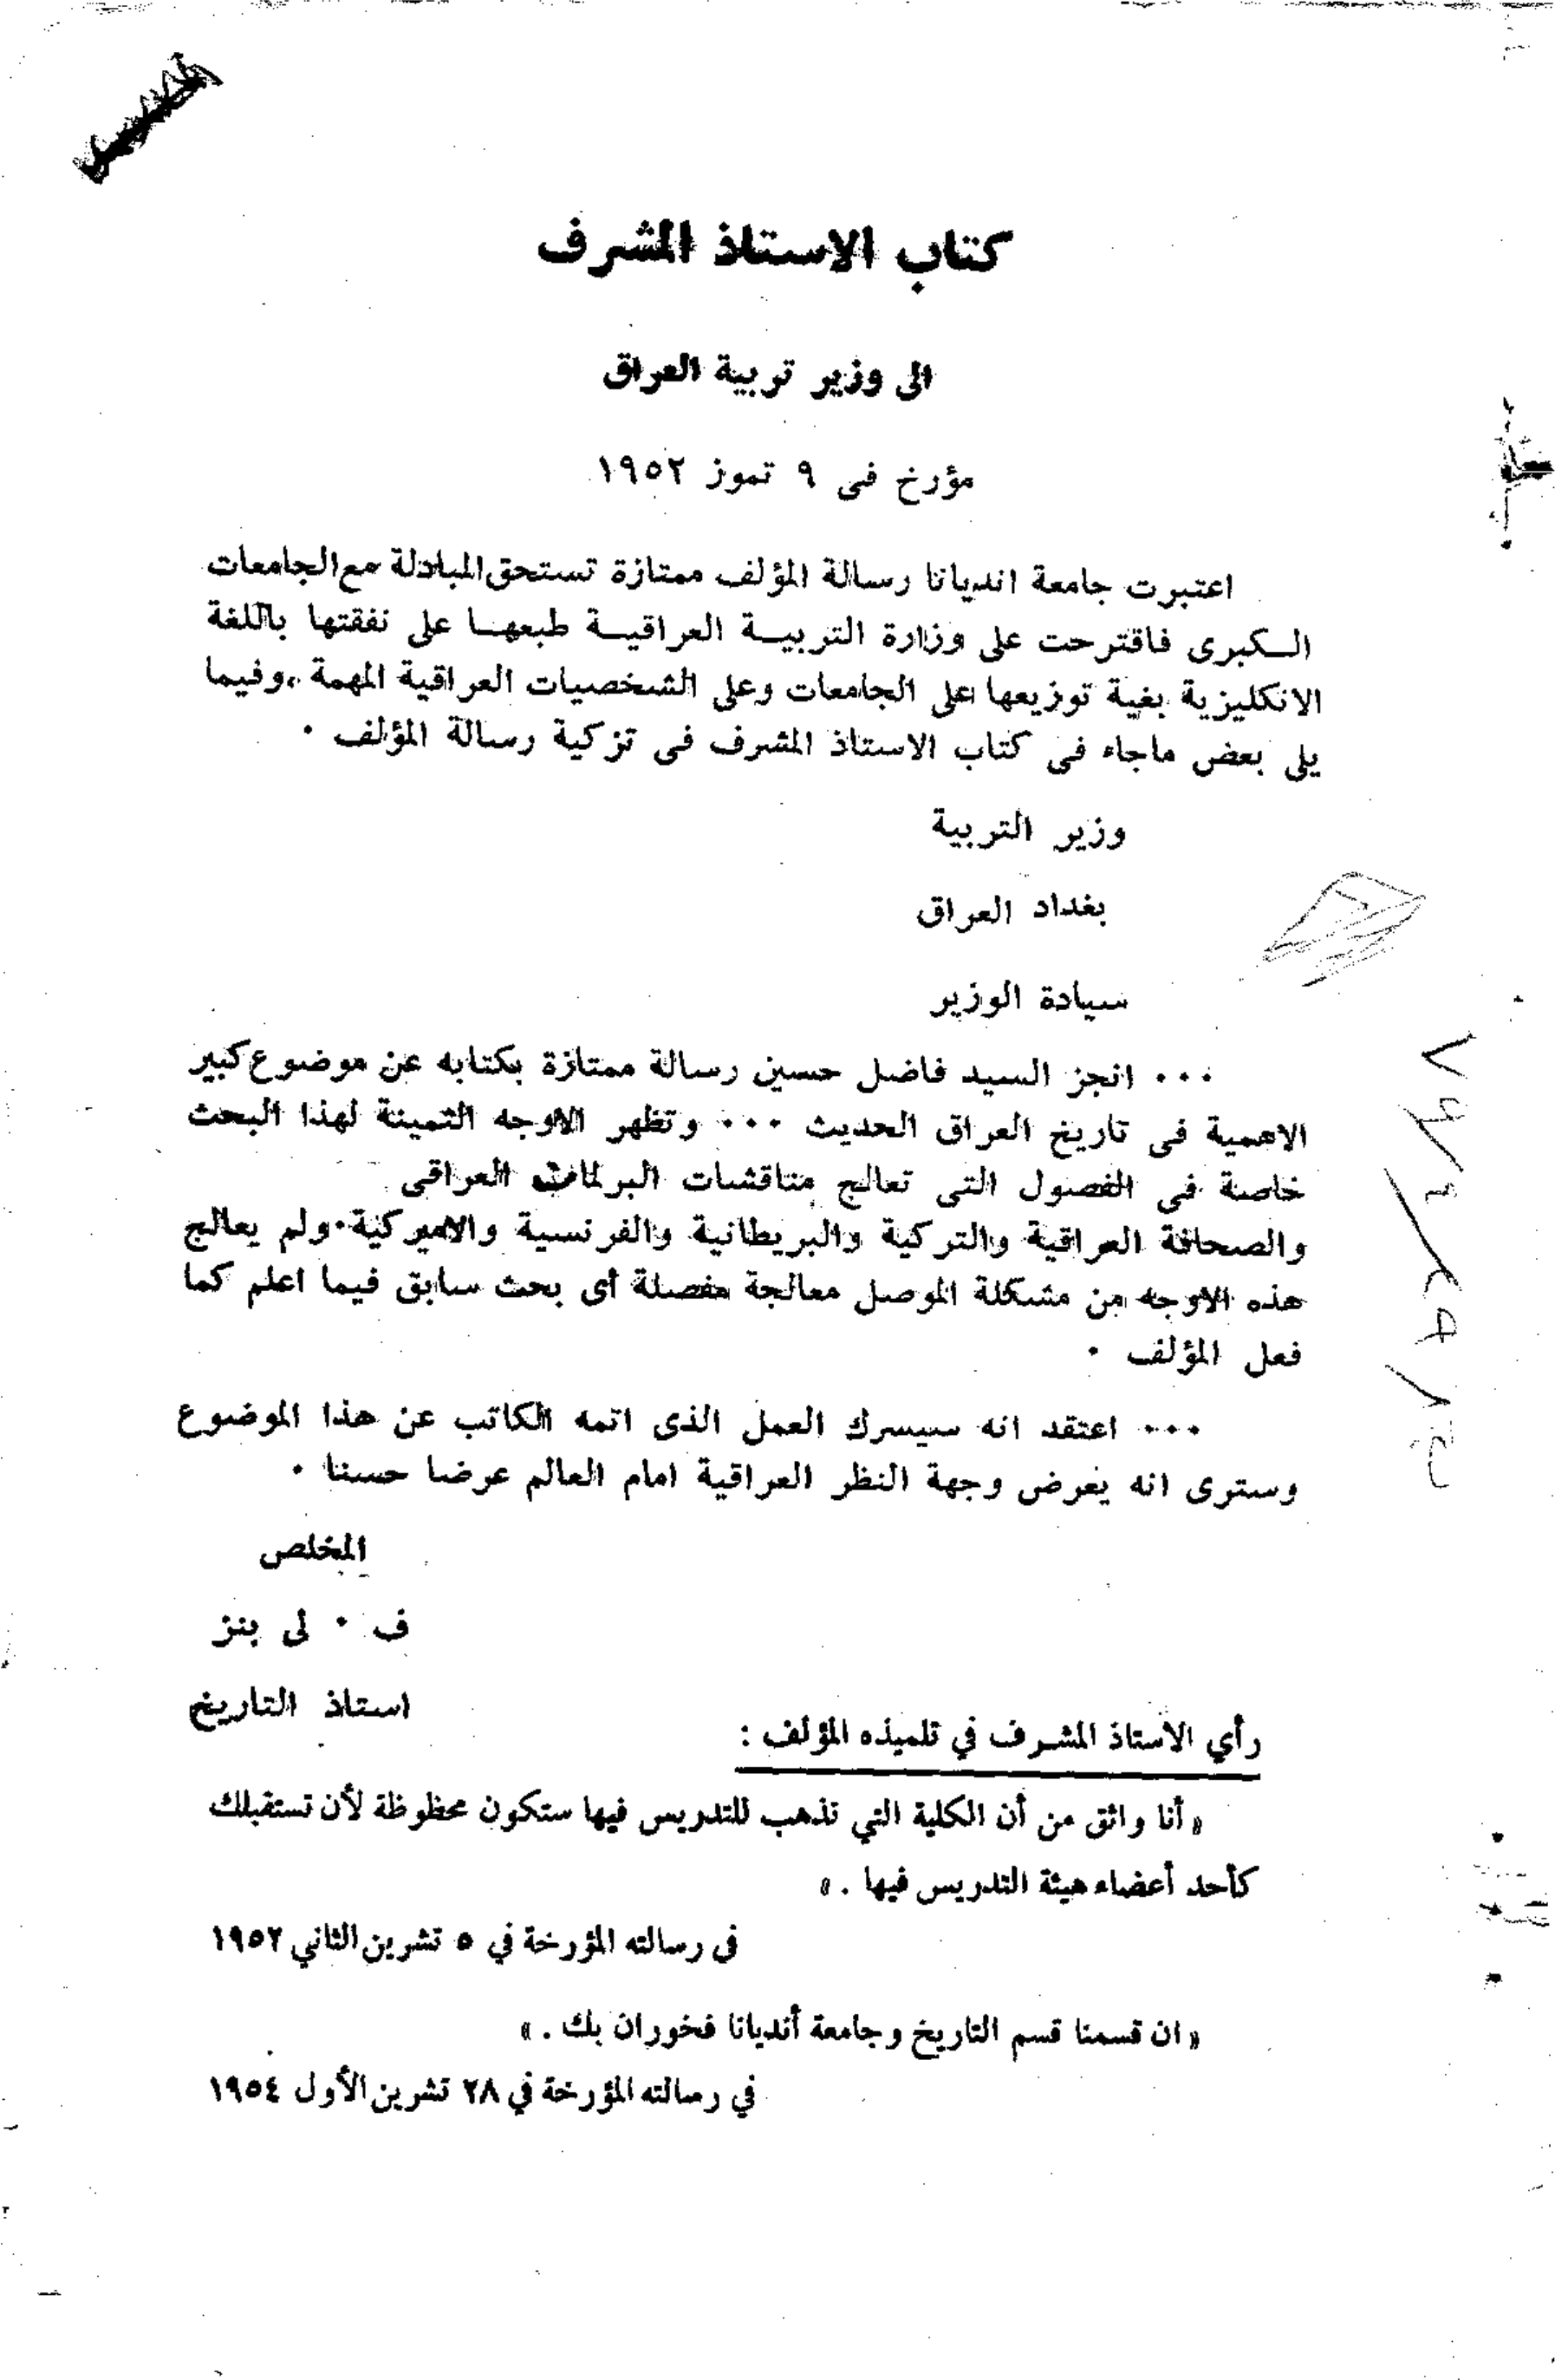 كتاب الاستاذ المشرف
الى وزير تربية العراق
مؤرخ فى ٩ تموز ١٩٥٢
اعتبرت جامعة انديانا رسالة المؤلف ممتازة تستحق المبادلة مع الجامعات
الكبرى فاقترحت على وزارة التربية العراقية طبعها على نفقتها باللغة
الانكليزية بغية توزيعها على الجامعات وعلى الشخصيات العراقية المهمة ، وفيما
يلى بعض ماجاء فى كتاب الاستاذ المشرف فى تزكية رسالة المؤلف ٠
وزير التربية
بغداد العراق
سيادة الوزير
٠٠٠ انجز السيد فاضل حسين رسالة ممتازة بكتابه عن موضوع كبير
الاهمية فى تاريخ العراق الحديث ٠٠٠ وتظهر الاوجه الثمينة لهذا البحث
خاصة فى الفصول التى تعالج مناقشات البرلمان العراقى
والصحافة العراقية والتركية والبريطانية والفرنسية والاميركية ٠ ولم يعالج
هذه الاوجه من مشكلة الموصل معالجة مفصلة أى بحث سابق فيما اعلم كما
فعل المؤلف ٠
٠٠٠ اعتقد انه سيسرك العمل الذى اتمه الكاتب عن هذا الموضوع
وسترى انه يعرض وجهة النظر العراقية امام العالم عرضا حسنا ٠
المخلص
ف ٠ لى بنز
استاذ التاريخ
رأي الاستاذ المشرف في تلميذه المؤلف :
« أنا واثق من أن الكلية التي تذهب للتدريس فيها ستكون محظوظة لأن تستقبلك
كأحد أعضاء هيئة التدريس فيها . »
فى رسالته المؤرخة في ٥ تشرين الثاني ١٩٥٢
« ان قسمنا قسم التاريخ وجامعة أنديانا فخوران بك . »
في رسالته المؤرخة في ٢٨ تشرين الأول ١٩٥٤